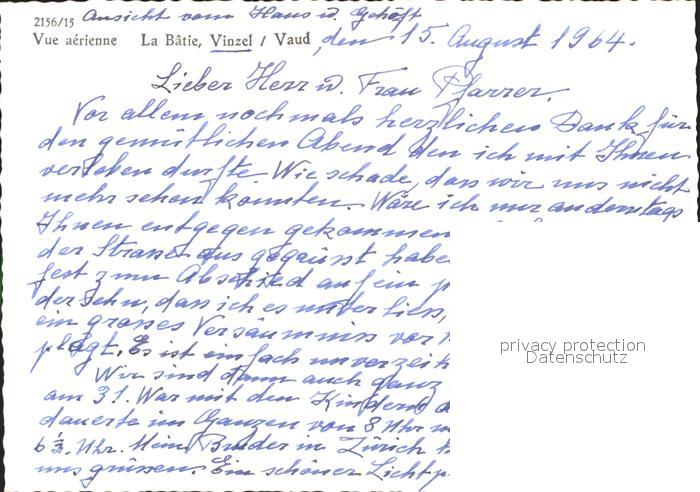 Ansicht vom Haus u. Gehöft
2156/15
Vue aérienne La Bâtie, Vinzel / Vaud, den 15. August 1964.
Lieber Herr u. Frau Pfarrer.
Vor allem nochmals herzlichen Dank für
den gemütlichen Abend den ich mit Ihnen
verleben durfte. Wie schade, dass wir uns nicht
mehr sehen konnten. Wäre ich nur andern tags
Ihnen entgegen gekommen
der Strasse aus gegrüsst habe
fest zum Abschied auf ein
der sehn, dass ich es unterliess,
ein grosses Versäumniss vor
plagt. Es ist einfach unverzeih
Wir sind dann auch ganz
am 31. War mit den Kindern
dauerte im Ganzen von 8 Uhr
6 ½ Uhr. Mein Bruder in Zürich
uns grüssen. Ein schöner Licht
privacy protection
Datenschutz